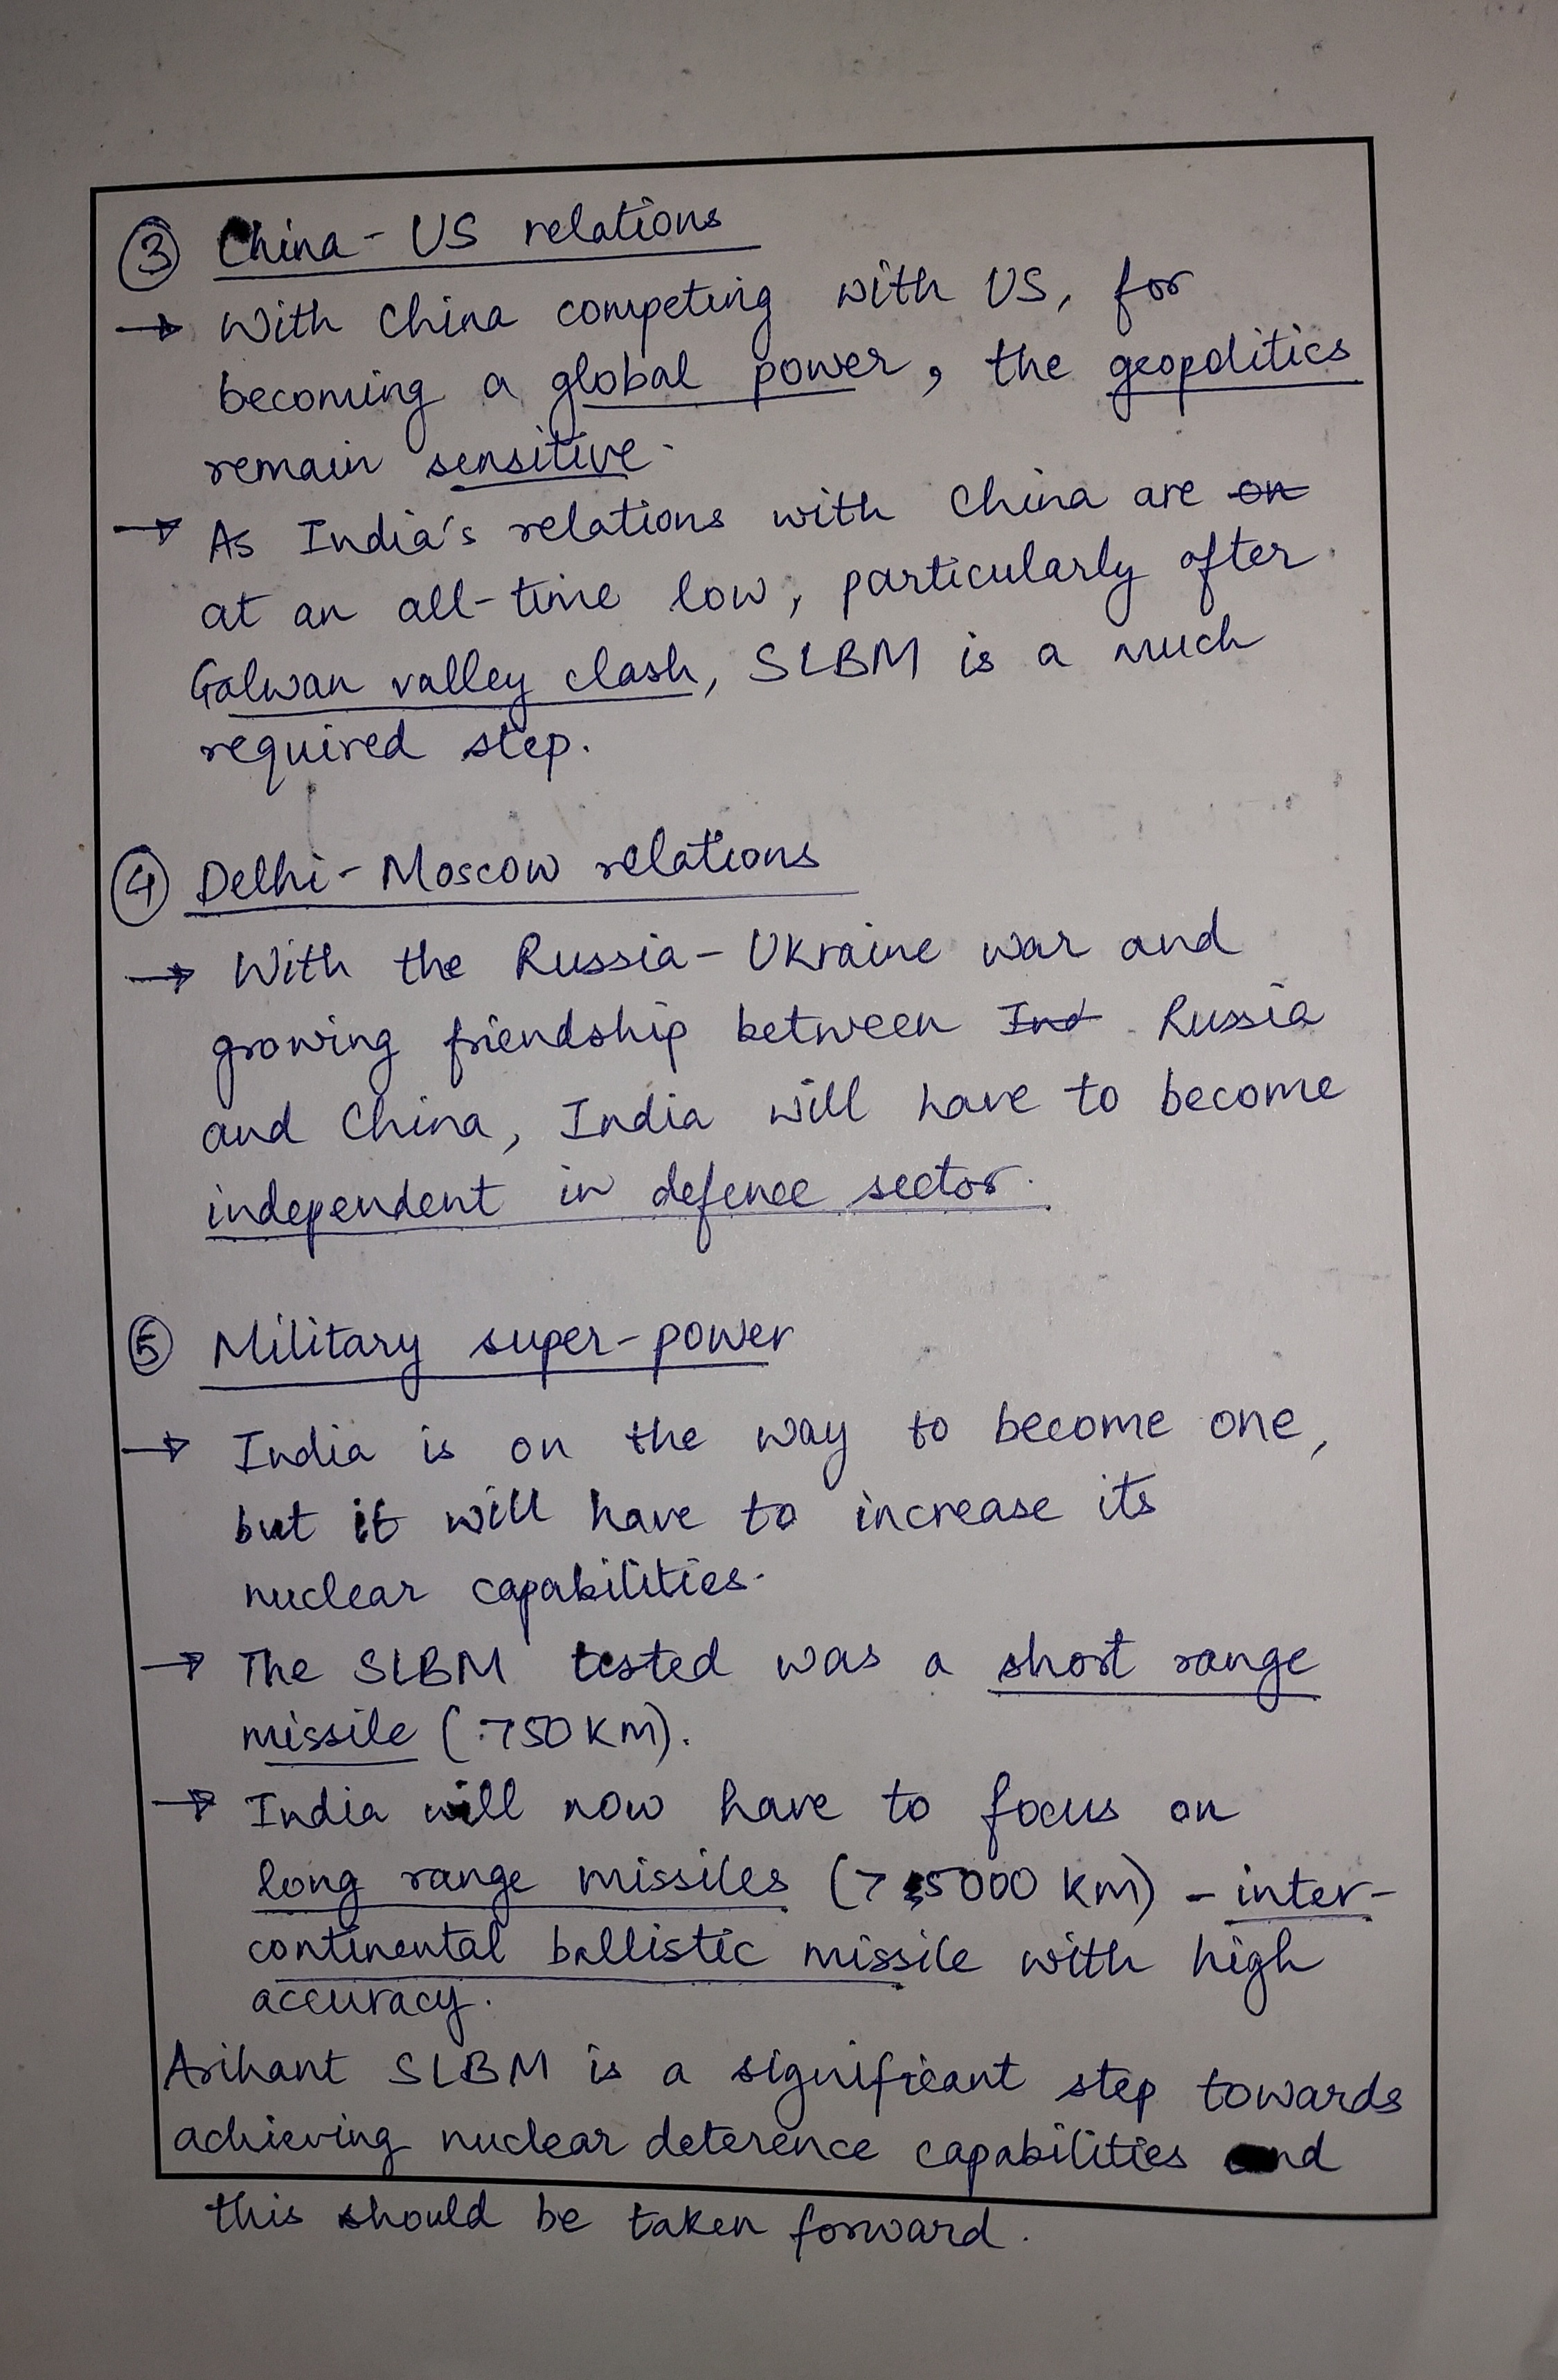 ③ China - US relations
→ With China competing with US, for
becoming a global power, the geopolitics
remain sensitive.
→ As India's relations with China are on
at an all-time low, particularly after
Galwan valley clash, SLBM is a much
required step.
④ Delhi - Moscow relations
→ With the Russia - Ukraine war and
growing friendship between Ind Russia
and China, India will have to become
independent in defence sector.
⑤ Military super-power
→ India is on the way to become one,
but it will have to increase its
nuclear capabilities.
→ The SLBM tested was a short range
missile (750 KM).
→ India will now have to focus on
long range missiles (> 5000 KM) - inter-
continental ballistic missile with high
accuracy.
Arihant SLBM is a significant step towards
achieving nuclear deterence capabilities and
this should be taken forward.